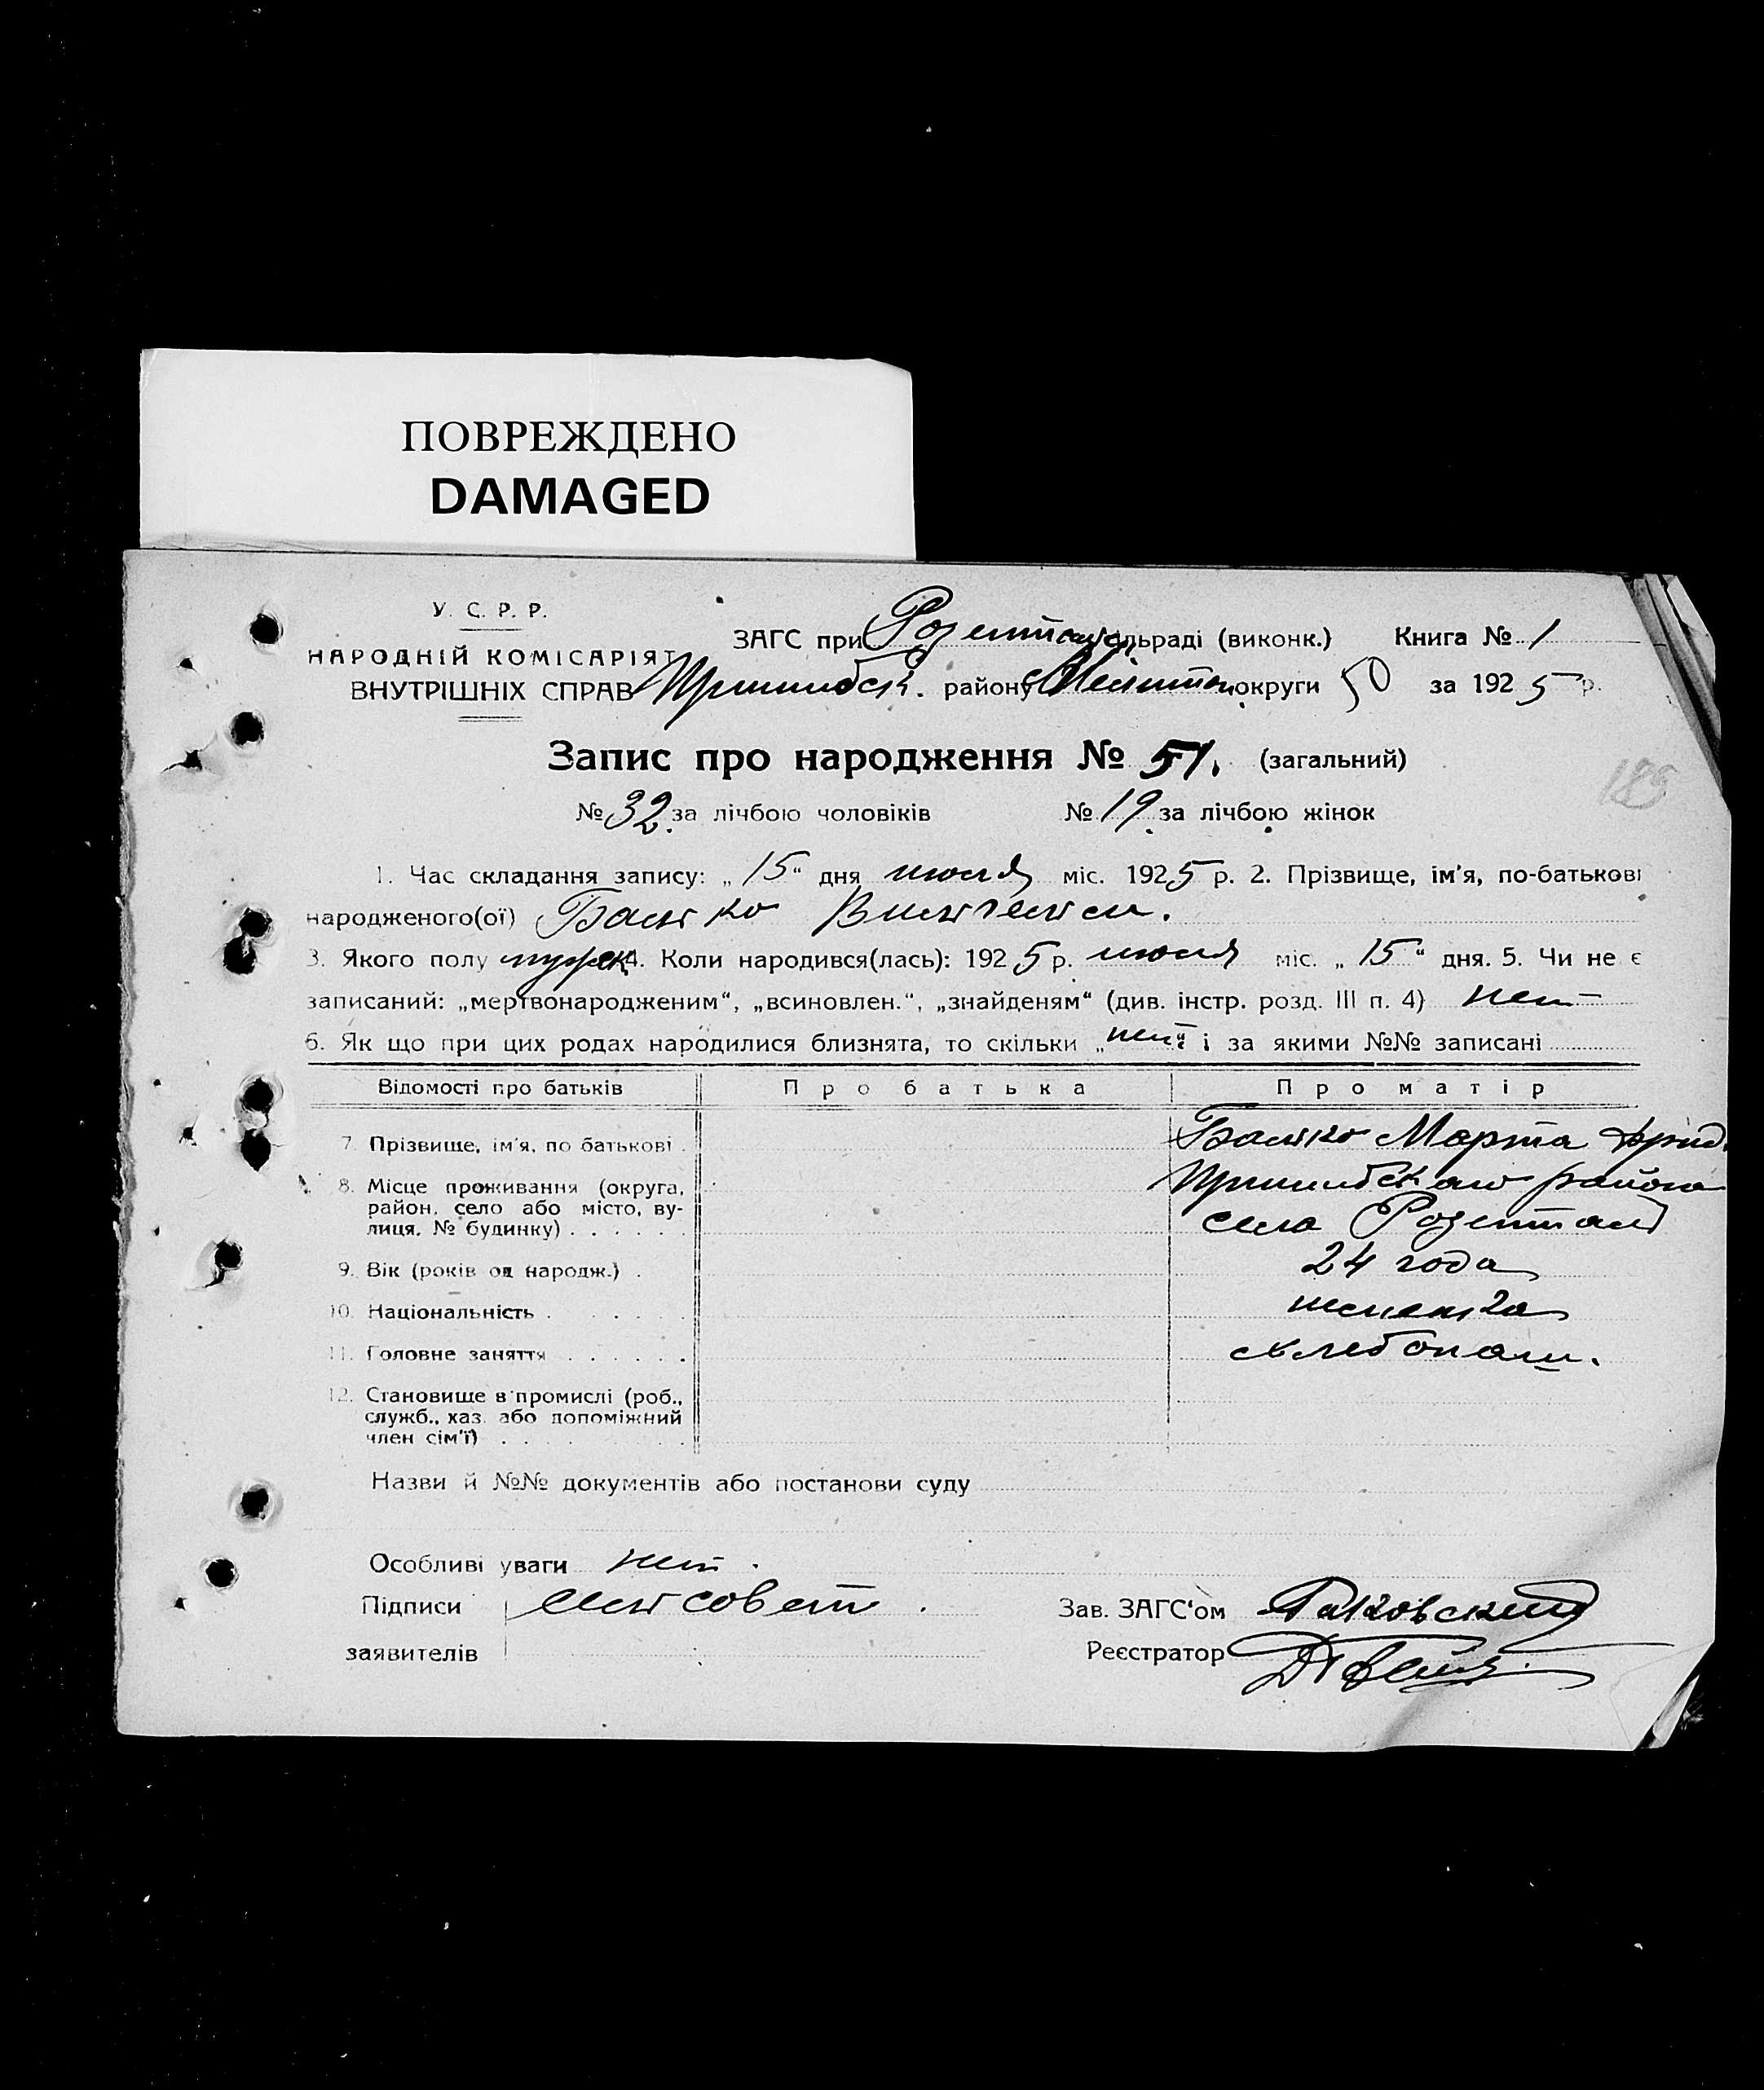 ПОВРЕЖДЕНО
DAMAGED
У. С. Р. Р.
НАРОДНІЙ КОМІСАРІЯТ
ВНУТРІШНІХ СПРАВ
ЗАГС при Розентальсільраді (виконк.) Книга № 1
Пришибск. району Мелитоп. округи 50 за 1925 р.
Запис про народження № 51. (загальний)
№ 32 за лічбою чоловіків № 19 за лічбою жінок
185
1. Час складання запису: „15“ дня июля міс. 1925 р. 2. Прізвище, ім'я, по-батькові
народженого(ої) Балько Вильгельм.
3. Якого полу мужск. 4. Коли народився(лась): 1925 р. июля міс. „15“ дня. 5. Чи не є
записаний: „мертвонародженим“, „всиновлен.“, „знайденям“ (див. інстр. розд. III п. 4) нет
6. Як що при цих родах народилися близнята, то скільки „нет“ і за якими №№ записані
Відомості про батьків Про батька Про матір
7. Прізвище, ім'я, по батькові . Балько Марта Фрид.
8. Місце проживання (округа, Пришибскаго района
район, село або місто, ву-
лиця, № будинку) . . . . . . село Розенталь
9. Вік (років од народж.) . 24 года
10. Національність . . . . . немка
11. Головне заняття . . . . . . хлебопаш.
12. Становище в промислі (роб.,
служб., хаз. або допоміжний
член сім'ї) . . . .
Назви й №№ документів або постанови суду
Особливі уваги нет.
Підписи сельсовет. Зав. ЗАГС‘ом
заявителів Реєстратор